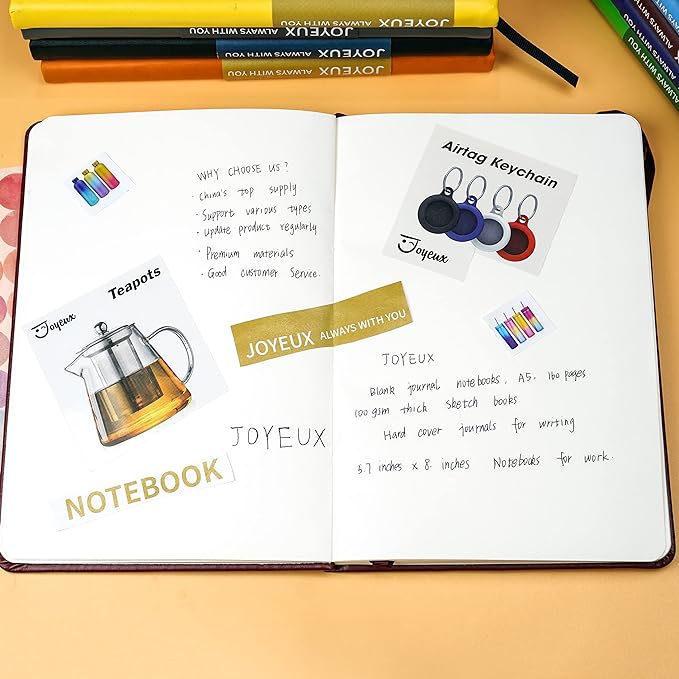 JOYEUX
ALWAYS WITH YOU
ALWAYS WITH YOU
JOYEUX
ALWAYS WITH YOU
JOYEUX
ALWAYS WITH YOU
JOYEUX
ALWAYS WITH YOU
ALWAYS WITH YOU
ALWAYS WITH YOU
WHY CHOOSE US?
· China's top supply
· Support various types
· Update product regularly
· Premium materials
· Good customer service.
Joyeux
Teapots
JOYEUX ALWAYS WITH YOU
JOYEUX
NOTEBOOK
Airtag Keychain
Joyeux
JOYEUX
Blank journal notebooks, A5. 160 pages
100 gsm thick sketch books.
Hard cover journals for writing
5.7 inches x 8. inches Notebooks for work.